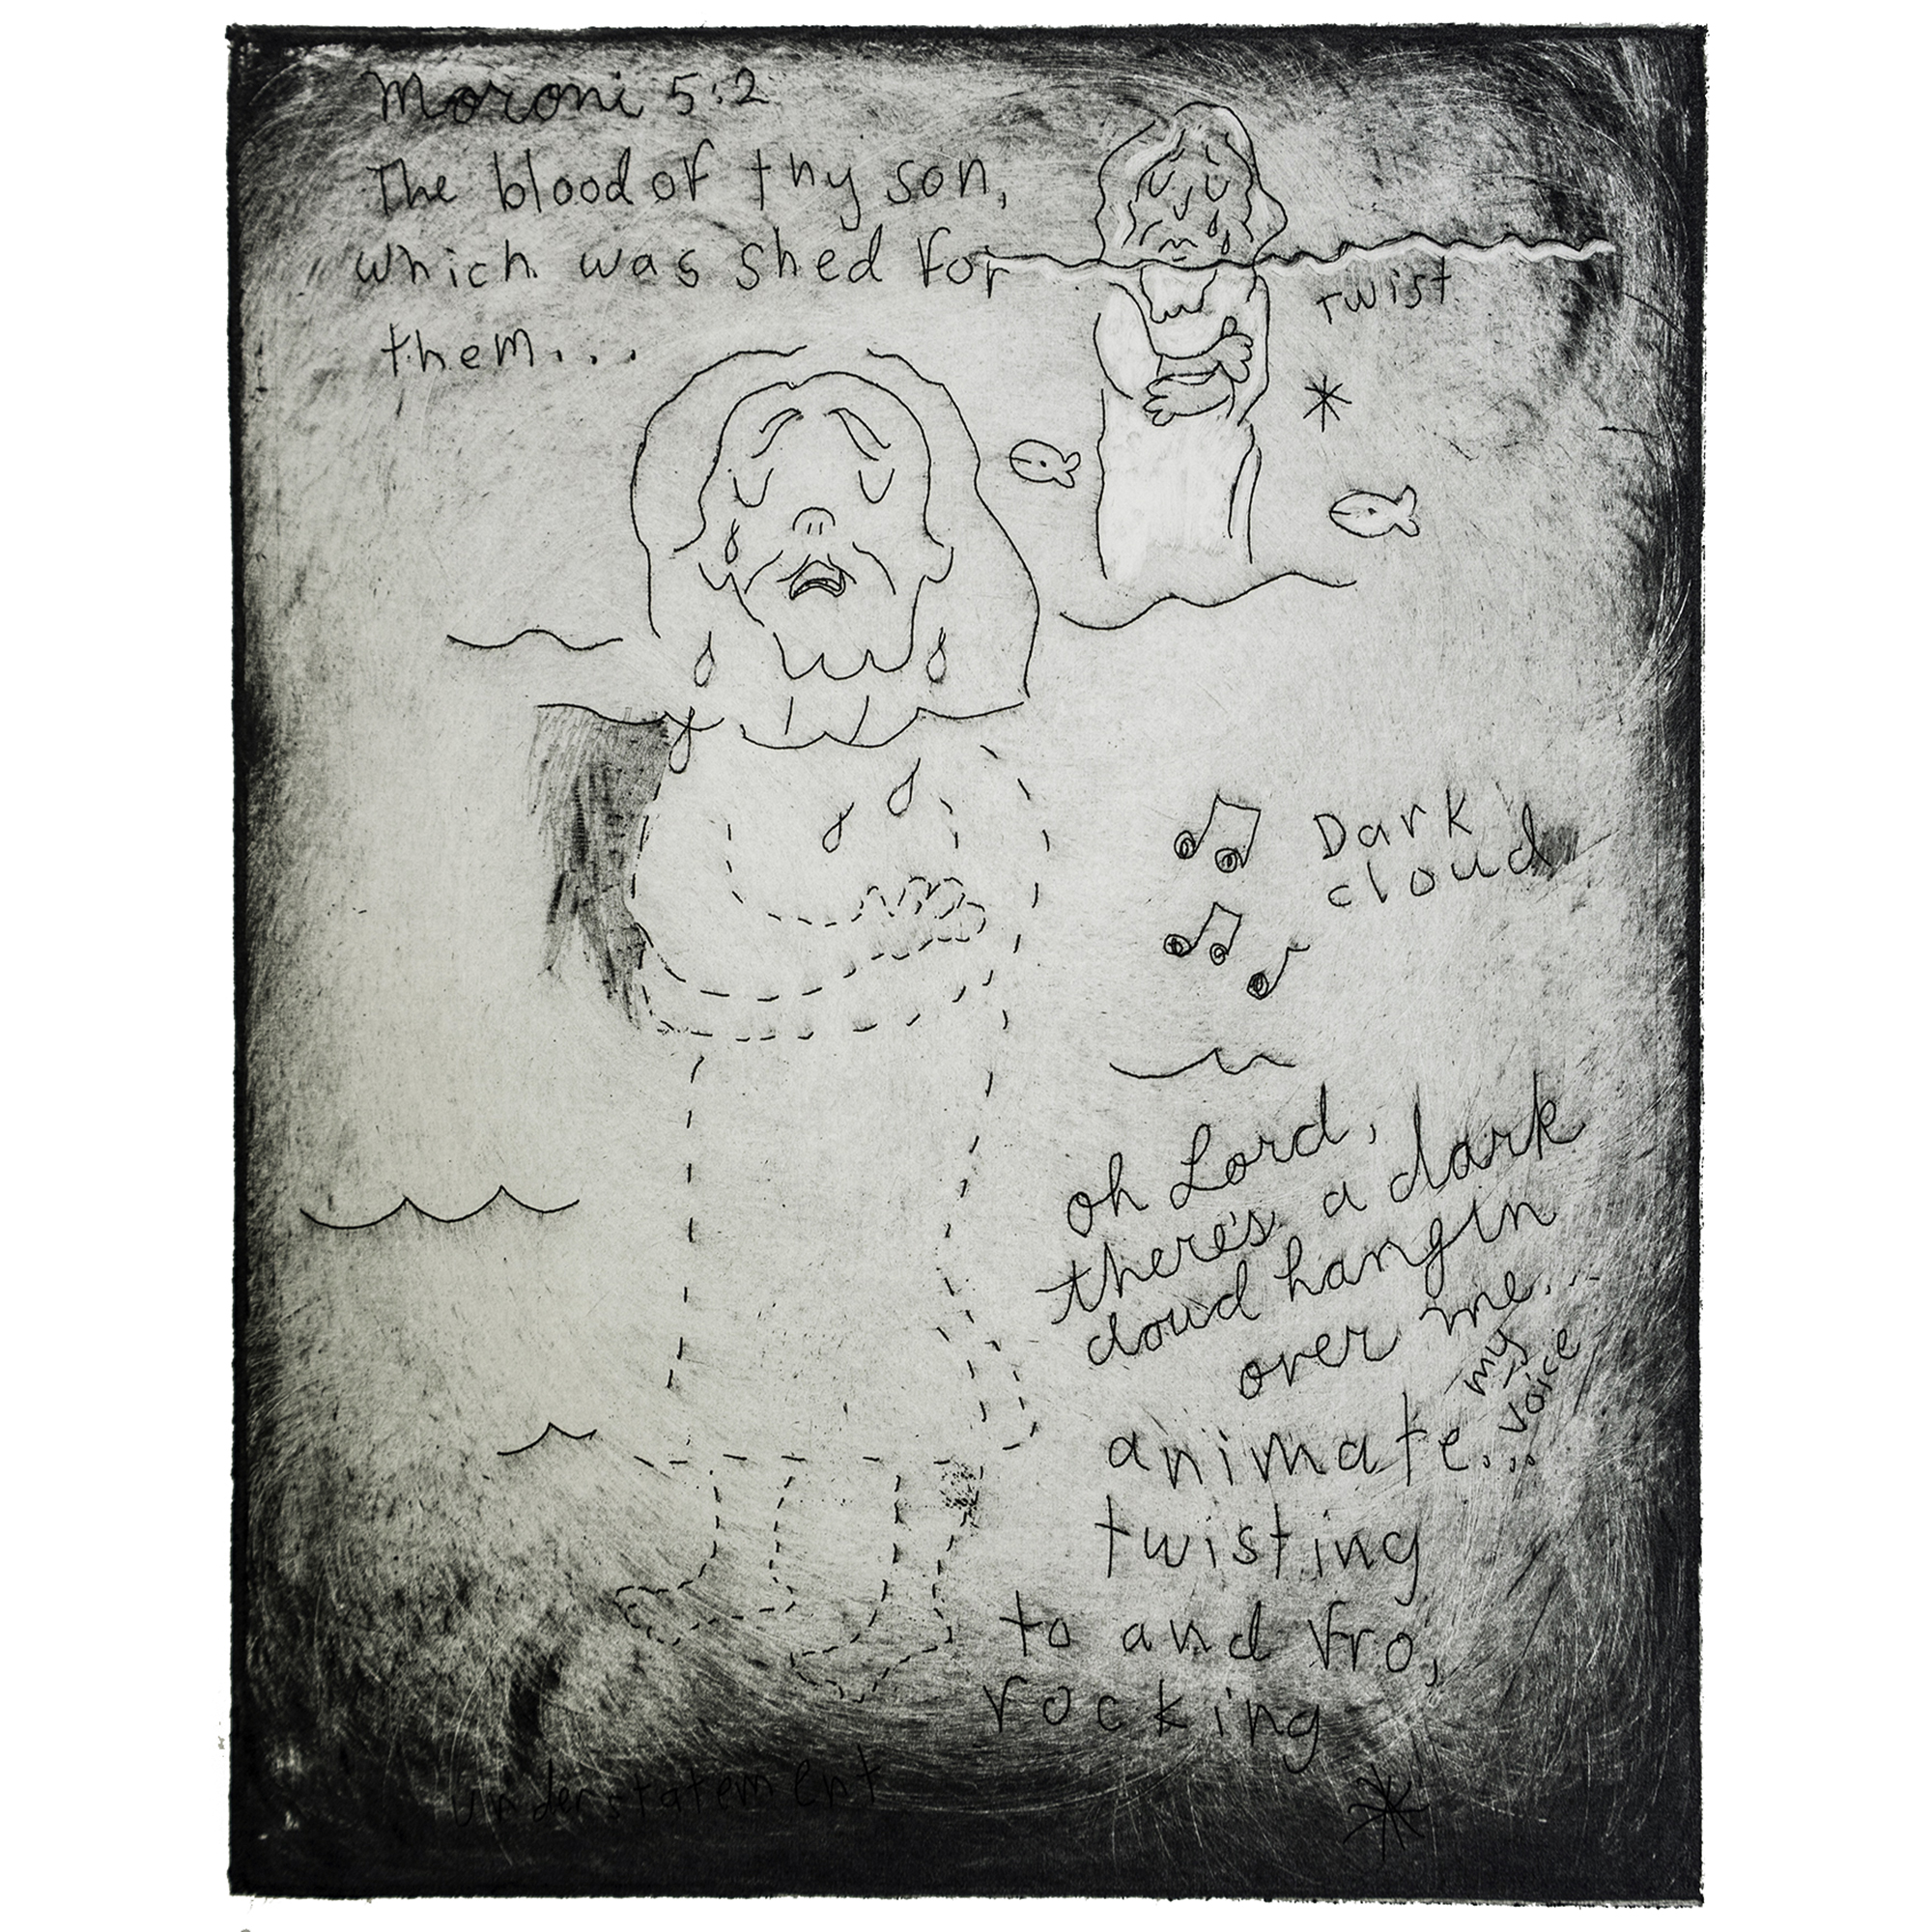 Moroni 5:2
The blood of thy son,
which was shed for
them...
twist
Dark
cloud
oh Lord,
there's a dark
cloud hangin
over me...
my
voice
animate...
twisting
to and fro,
rocking
understatement